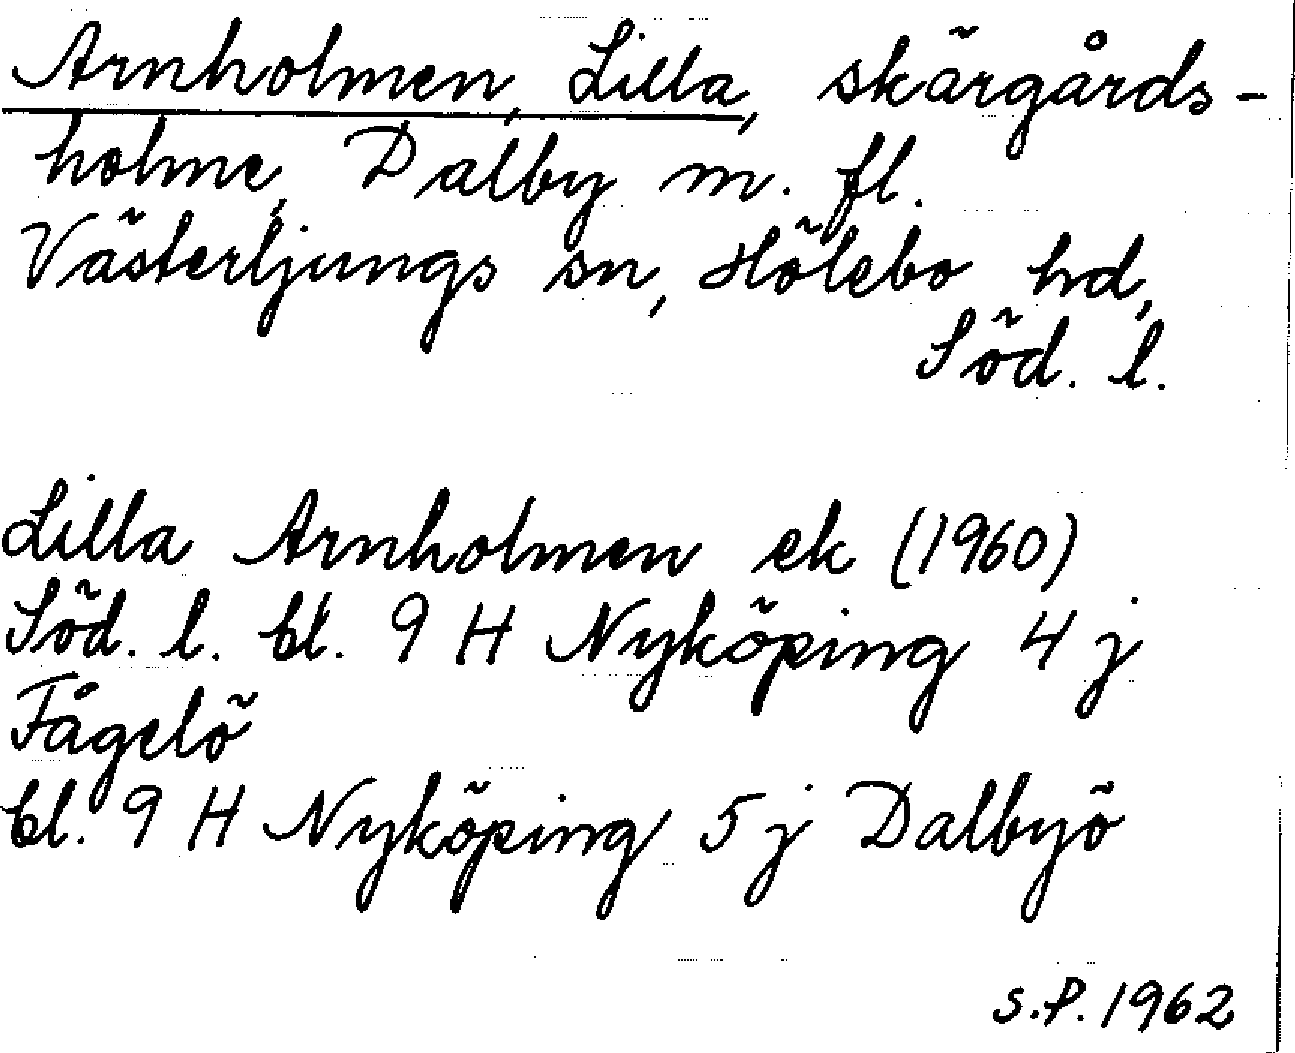 Arnholmen, Lilla, skärgårds-
holme, Dalby m. fl.
Västerljungs sn, Hölebo hd,
Söd. l.
Lilla Arnholmen ek (1960)
Söd. l. bl. 9 H Nyköping 4 j
Fågelö
bl. 9 H Nyköping 5 j Dalbyö
S.P. 1962